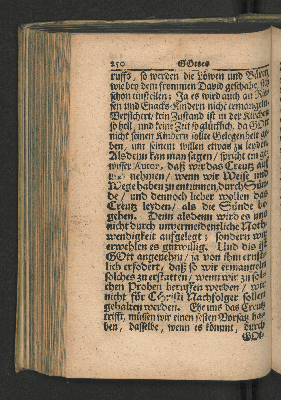 250 GOttes
ruffs, so werden die Löwen und Bären
wie bey dem frommen David geschahe, sich
schon einstellen; Ja es wird auch an Rie-
sen und Enacks-Kindern nicht ermangeln.
Versichert, kein Zustand ist in der Kirchen
so hell, und keine Zeit so glücklich, da GOtt
nicht seinen Kindern solte Gelegenheit ge-
ben, um seinet willen etwas zu leyden.
Alsdenn kan man sagen / spricht ein ge-
wisser Autor, daß wir das Creutz auf
uns nehmen / wenn wir Weise und
Wege haben zu entrinnen durch Sün-
de / und dennoch lieber wollen das
Creutz leyden / als die Sünde be-
gehen. Denn alsdenn wird es uns
nicht durch unvermeidentliche Noth-
wendigkeit aufgelegt; sondern wir
erwehlen es gutwillig. Und das ist
GOtt angenehm / ja von ihm ernst-
lich erfodert, daß so wir ermangeln
solches zu erstatten / wenn wir zu sol-
chen Proben beruffen werden / wir
nicht für Christi Nachfolger sollen
gehalten werden. Ehe uns das Creutz
trifft, müssen wir einen festen Vorsatz ha-
ben, dasselbe, wenn es kömmt, durch
GOt-